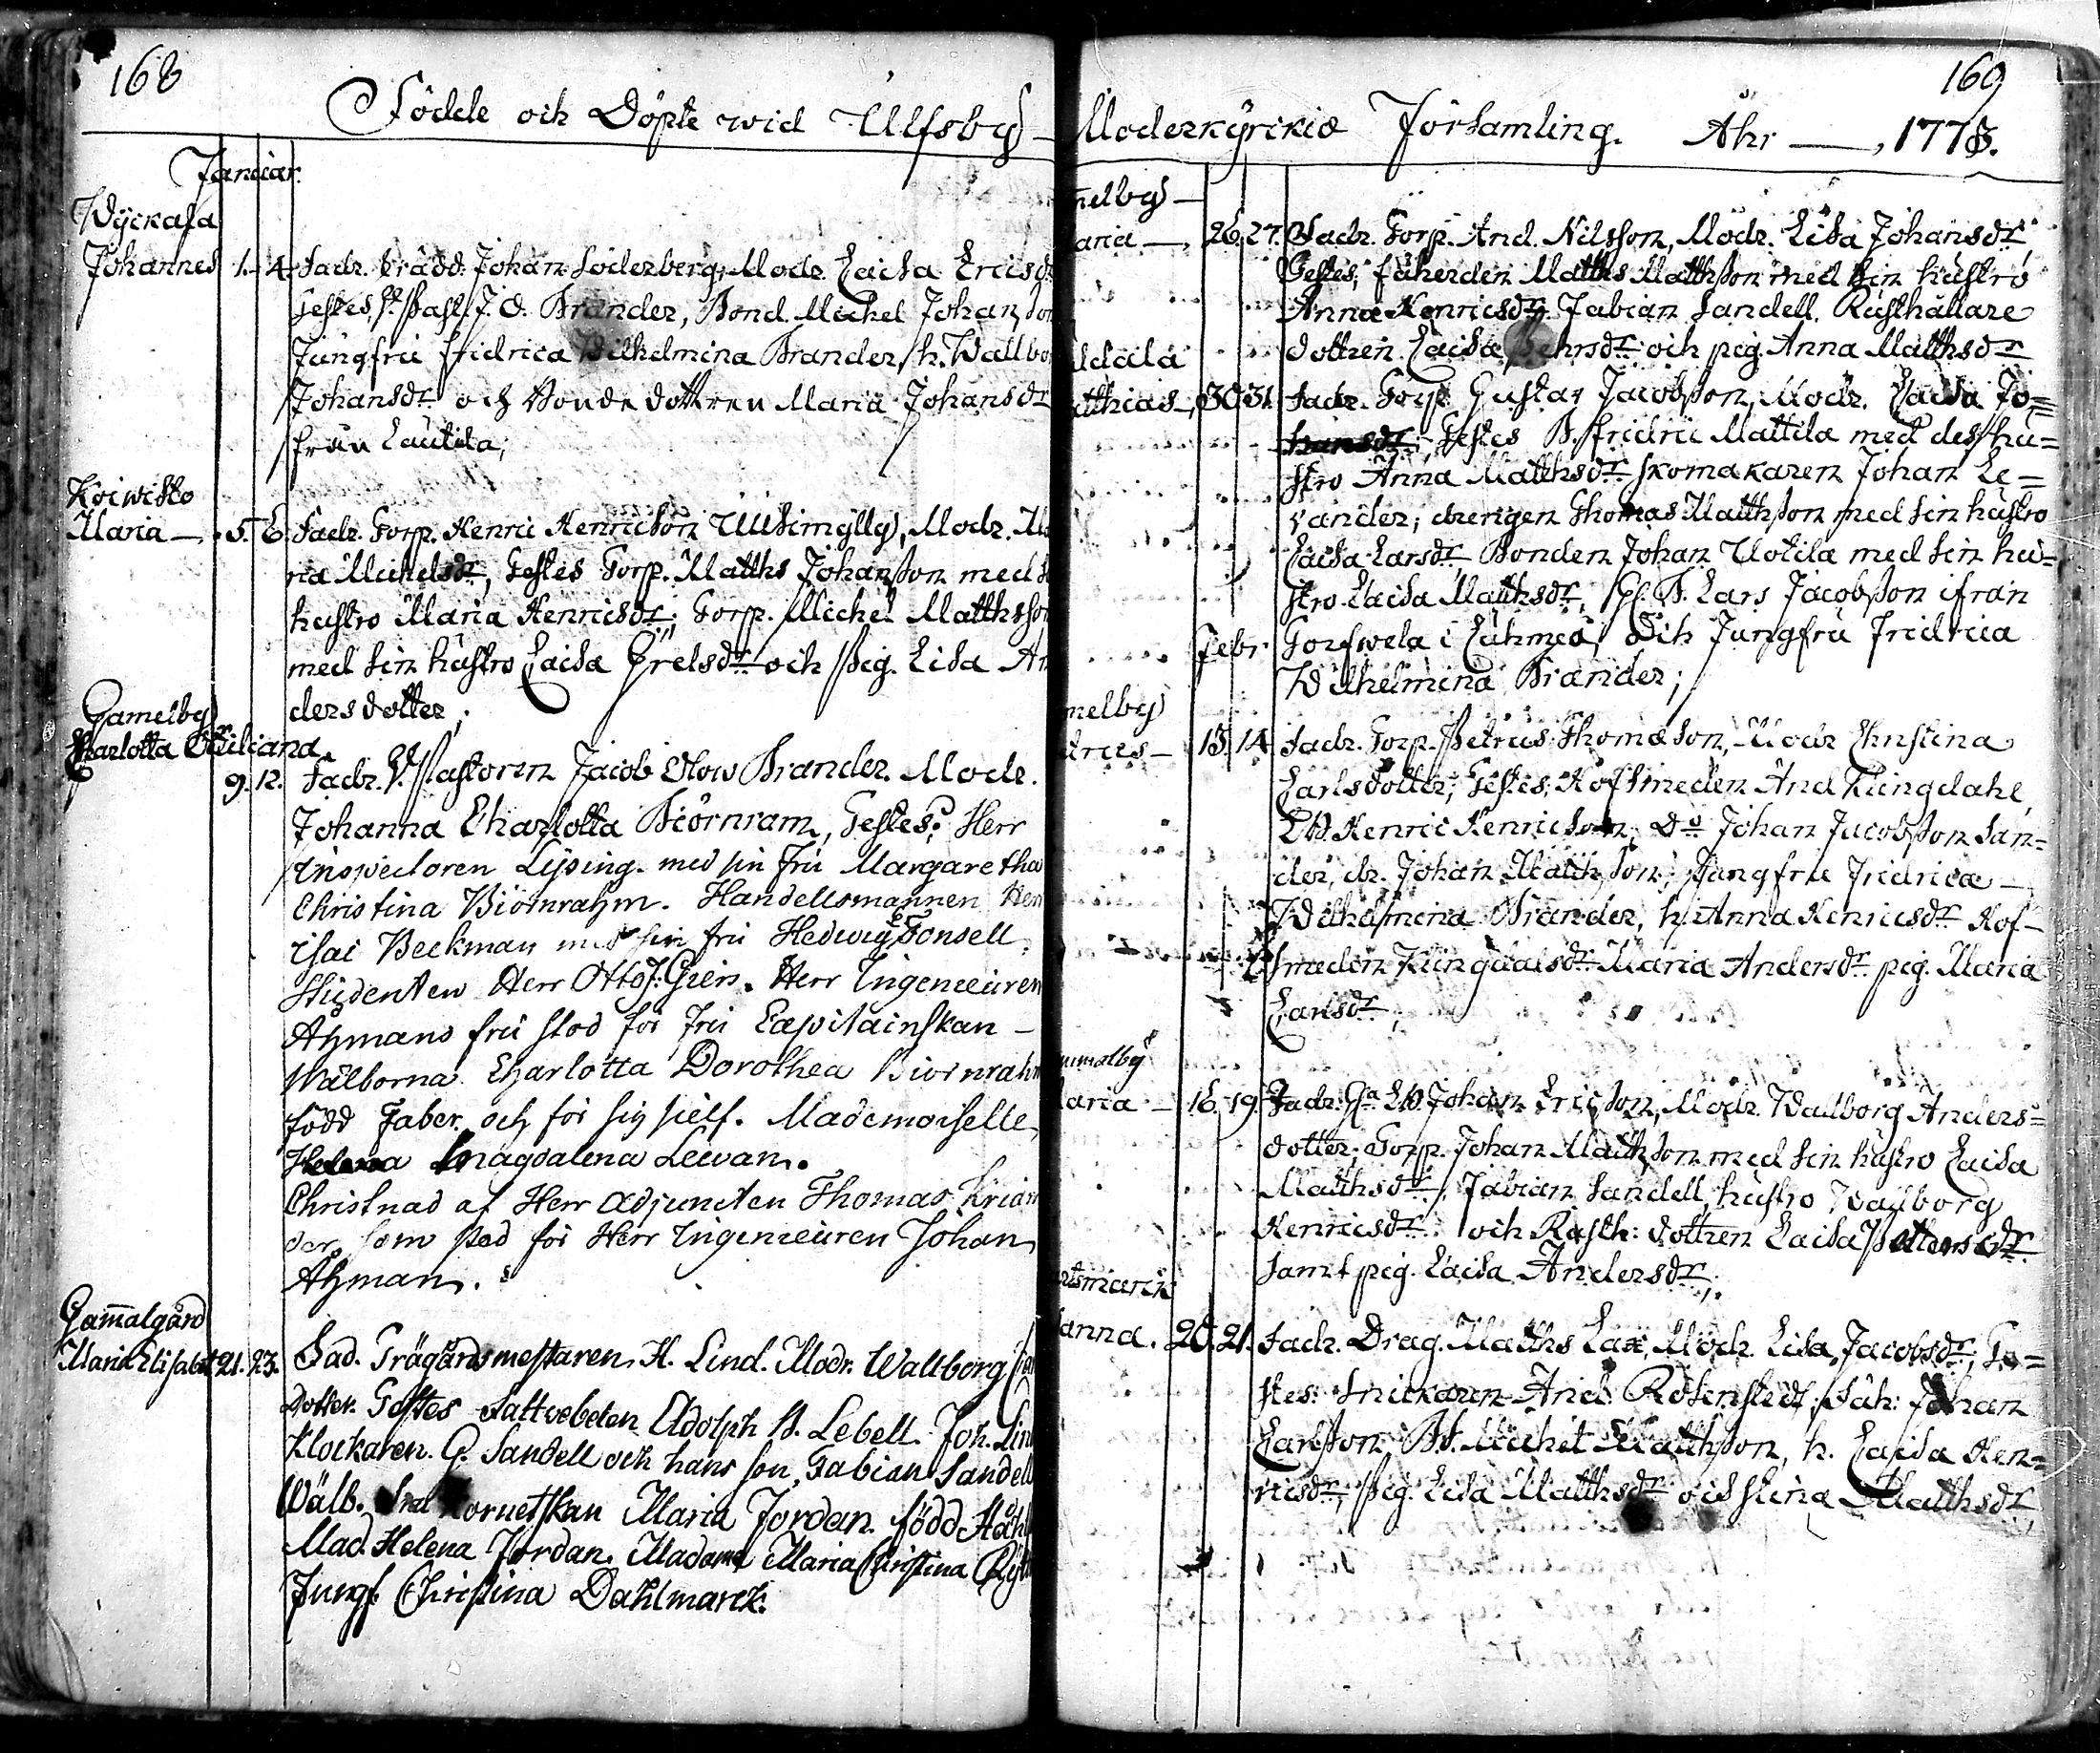 168
Födde och Döpte wid Ulfsby
Januar.
Wyckala
Johannes 1. 4. Fadr. Johan Söderberg, Modr. Caisa Ericsdr
Testes, J. O. Brander, Bond. Michel Johansson
Jungfru Fridrica Wilhelmina Brander, h. Wallbo
Johansdr och Bondedottren Maria Johansdr
från Lautila;
Koiwisto
Maria 5. 6. Fadr. Torp. Henric Henricson Uusimylly, Modr. Ma
ria Michelsdr, Testes Torp. Matths Johansson med s
hustro Maria Henricsdr; Torp. Michel Matthsson
med sin hustro Caisa Grelsdr och Pig. Lisa An
dersdotter;
Gamelby
Charlotta Juliana
9. 12. Fadr. V. Pastoren Jacob Olow Brander. Modr.
Johanna Charlotta Biörnram, Testes: Herr
Inspectoren Lysing med sin Fru Margaretha
Christina Biörnrahm. Handellsmannen Herr
Isac Beckman med sin fru Hedwig Fonsell
Studenten Herr Otto J: Gien. Herr Ingenieuren
Ahmans fru stod för Fru Capitainskan
Wälborna Charlotta Dorothea Biörnrahm
född Faber och för sig sielf. Mademoiselle
Helena Magdalena Lewan.
Christnad af Herr Adjuncten Thomas Krian
der som stod för Herr Ingenieuren Johan
Ahman.
Gamalgård
Maria Elisabet 21. 23. Fad. Trägårdsmestaren H. Lind. Modr. Wallborg
dotter. Testes Adolph B. Lebell. Joh. Lin
Klockaren. G. Sandell och hans son, Fabian Sandell
Wälb. Cornetskan Maria Jordan. född Ståhl
Mad. Helena Jordan. Madame Maria Christina
Jungf. Christina Dahlmarck.
169
Moderkyrckio Församling. Åhr 1778.
melby
aria 26. 27. Fadr. Torp. And. Nilsson, Modr. Lisa Johansdr
Testes; fäherden Matths Matthsson med sin hustro
Anna Henricsdr, Fabian Sandell. Rusthållare
dottren Caisa och pig. Anna Matthsdr
atthias 30. 31. Fadr. Torp. Gustav Jacobsson, Modr. Caisa Jo=
hansdr; Testes B. Fridric Mattila med des hu=
stro Anna Matthsdr skomakaren Johan Le=
vander; drengen Thomas Matthsson med sin hustro
Caisa Larsdr Bonden Johan Uotila med sin hu=
stro Caisa Matthsdr; B. Lars Jacobsson ifrån
Febr. i Euhmeå; Och Jungfru Fridrica
Wilhelmina Brander;
melby
trus 13. 14. Fadr. Torp. Petrus Thomæson, Modr Christina
Carlsdotter; Testes: Hofsmeden And Kungdahl,
Henric Henricson, Do Johan Jacobsson San=
der, dr. Johan Matthsson; Jungfru Fridrica
Wilhelmina Brander, h. Anna Henricsdr Hof=
smeden Kungdalsdr Maria Andersdr pig. Maria
Carlsdr;
ammalby
aria 16. 19. Fadr. Johan Ericsson, Modr. Wallborg Anders=
dotter; Torp. Johan Matthsson med sin hustro Caisa
Matthsdr, Fabian Sandell, hustro Wallborg
Henricsdr och Rusth: dottren Caisa
samt pig. Caisa Andersdr;
anna. 20. 21. Fadr. Drag. Matths Lax, Modr. Lisa Jacobsdr; Te=
stes: Snickaren And. Rosenstedt; Johan
Carlsson Michel Matthsson, h. Caisa Hen=
ricsdr, Pig. Lisa Matthsdr och Stina Matthsdr,